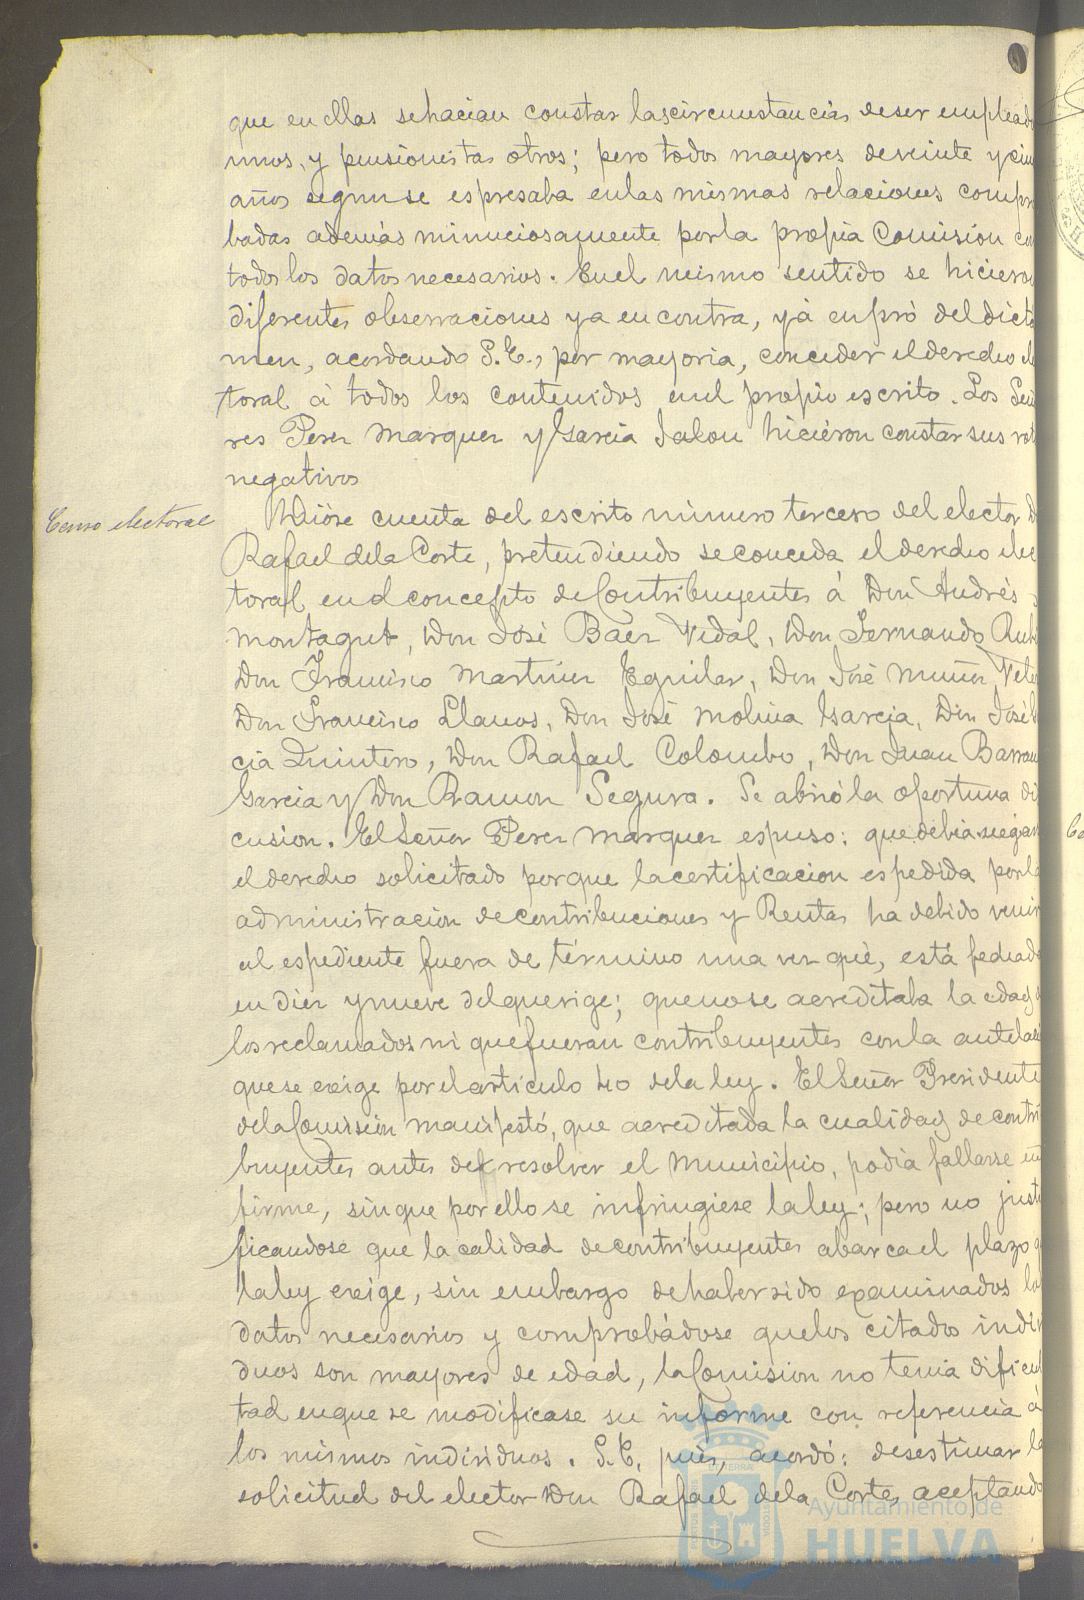 que en ellas se hacian constar las circunstancias de ser emplead
unos, y pensionistas otros; pero todos mayores de veinte y cin
años segun se espresaba en las mismas relaciones compro
badas además minuciosamente por la propia Comision con
todos los datos necesarios. En el mismo sentido se hicieron
diferentes observaciones ya en contra, yá en pró del dictá
men, acordando S.E., por mayoria, conceder el derecho elec
toral á todos los contenidos en el propio escrito. Los Seño
res Perez Marquez y Garcia Jalon hicieron constar sus vot
negativos
Censo electoral
Dióse cuenta del escrito número tercero del elector D
Rafael de la Corte, pretendiendo se conceda el derecho elec
toral en el concepto de Contribuyentes á Don Andrés
Montagut, Don José Baez Vidal, Don Fernando Rubi
Don Francisco Martinez Eguilaz, Don José Muñoz Vele
Don Francisco Llanos, Don José Molina Garcia, Don José
cia Quintero, Don Rafael Colombo, Don Juan Barran
Garcia y Don Ramon Segura. Se abrió la oportuna di
cusion. El Señor Perez Marquez espuso: que debia negars
el derecho solicitado porque la certificacion espedida por la
administracion de contribuciones y Rentas ha debido venir
al espediente fuera de término una vez qué, está fechada
en diez y nueve del que rige; que no se acreditaba la edad d
los reclamados ni que fueran contribuyentes con la antelaci
que se exige por el articulo 40 de la ley. El Señor Presidente
de la Comisión manifestó, que acreditada la cualidad de contri
buyentes antes de resolver el Municipio, podia fallarse en
firme, sin que por ello se infringiese la ley; pero no justi
ficandose que la calidad de contribuyentes abarca el plazo q
la ley exige, sin embargo de haber sido examinados los
datos necesarios y comprobádose que los citados indivi
duos son mayores de edad, la Comision no tenia dificul
tad en que se modificase su informe con referencia á
los mismos individuos. S.E. pués, acordó: desestimar la
solicitud del elector Don Rafael de la Corte, aceptando
Ayuntamiento de
HUELVA